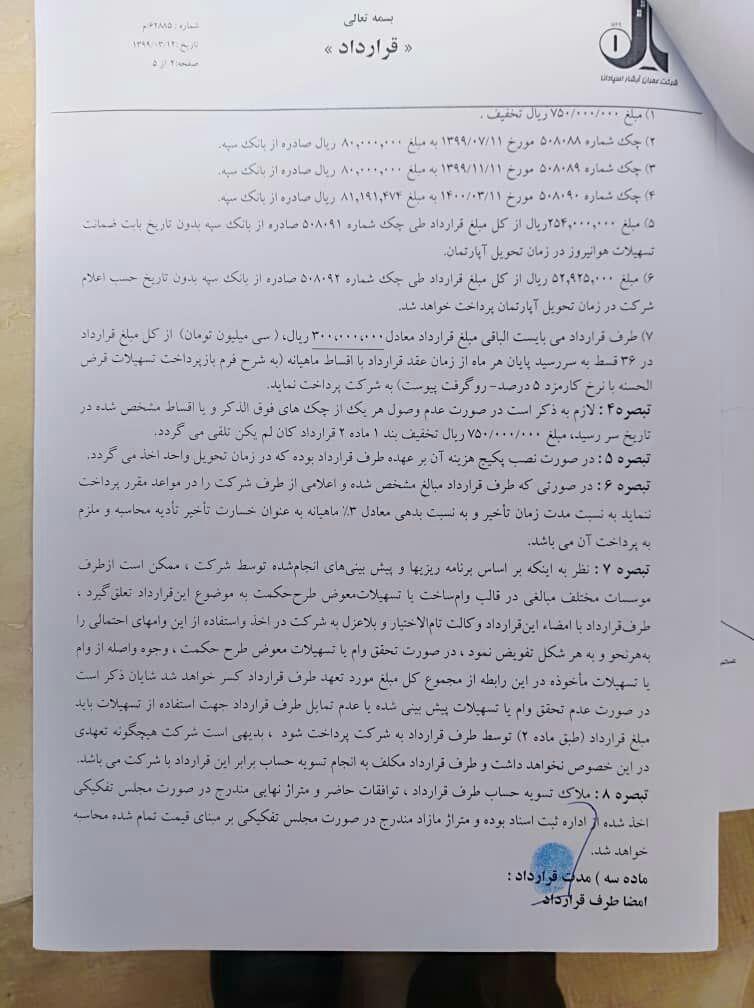 بسمه تعالی
« قرارداد »
شماره : ۶۲۸۸۵/م
تاریخ : ۱۳۹۹/۰۳/۱۲
صفحه: ۲ از ۵
۱
شرکت عمران آبشار اسپادانا
۱) مبلغ ۷۵۰/۰۰۰/۰۰۰ ریال تخفیف .
۲) چک شماره ۵۰۸۰۸۸ مورخ ۱۳۹۹/۰۷/۱۱ به مبلغ ۸۰,۰۰۰,۰۰۰ ریال صادره از بانک سپه.
۳) چک شماره ۵۰۸۰۸۹ مورخ ۱۳۹۹/۱۱/۱۱ به مبلغ ۸۰,۰۰۰,۰۰۰ ریال صادره از بانک سپه.
۴) چک شماره ۵۰۸۰۹۰ مورخ ۱۴۰۰/۰۳/۱۱ به مبلغ ۸۱,۱۹۱,۴۷۴ ریال صادره از بانک سپه.
۵) مبلغ ۲۵۴,۰۰۰,۰۰۰ریال از کل مبلغ قرارداد طی چک شماره ۵۰۸۰۹۱ صادره از بانک سپه بدون تاریخ بابت ضمانت
تسهیلات هوانیروز در زمان تحویل آپارتمان.
۶) مبلغ ۵۲,۹۲۵,۰۰۰ ریال از کل مبلغ قرارداد طی چک شماره ۵۰۸۰۹۲ صادره از بانک سپه بدون تاریخ حسب اعلام
شرکت در زمان تحویل آپارتمان پرداخت خواهد شد.
۷) طرف قرارداد می بایست الباقی مبلغ قرارداد معادل ۳۰۰,۰۰۰,۰۰۰ ریال، ( سی میلیون تومان) از کل مبلغ قرارداد
در ۳۶ قسط به سررسید پایان هر ماه از زمان عقد قرارداد با اقساط ماهیانه (به شرح فرم بازپرداخت تسهیلات قرض
الحسنه با نرخ کارمزد ۵ درصد- روگرفت پیوست) به شرکت پرداخت نماید.
تبصره۴ : لازم به ذکر است در صورت عدم وصول هر یک از چک های فوق الذکر و یا اقساط مشخص شده در
تاریخ سر رسید، مبلغ ۷۵۰/۰۰۰/۰۰۰ ریال تخفیف بند ۱ ماده ۲ قرارداد کان لم یکن تلقی می گردد.
تبصره ۵ : در صورت نصب پکیج هزینه آن بر عهده طرف قرارداد بوده که در زمان تحویل واحد اخذ می گردد.
تبصره ۶ : در صورتی که طرف قرارداد مبالغ مشخص شده و اعلامی از طرف شرکت را در مواعد مقرر پرداخت
ننماید به نسبت مدت زمان تأخیر و به نسبت بدهی معادل ۳٪ ماهیانه به عنوان خسارت تأخیر تأدیه محاسبه و ملزم
به پرداخت آن می باشد.
تبصره ۷ : نظر به اینکه بر اساس برنامه ریزیها و پیش بینی‌های انجام‌شده توسط شرکت ، ممکن است ازطرف
موسسات مختلف مبالغی در قالب وام‌ساخت یا تسهیلات‌معوض طرح‌حکمت به موضوع این‌قرارداد تعلق‌گیرد ،
طرف‌قرارداد با امضاء این‌قرارداد وکالت تام‌الاختیار و بلاعزل به شرکت در اخذ واستفاده از این وامهای احتمالی را
به‌هرنحو و به هر شکل تفویض نمود ، در صورت تحقق وام یا تسهیلات معوض طرح حکمت ، وجوه واصله از وام
یا تسهیلات مأخوذه در این رابطه از مجموع کل مبلغ مورد تعهد طرف قرارداد کسر خواهد شد شایان ذکر است
در صورت عدم تحقق وام یا تسهیلات پیش بینی شده یا عدم تمایل طرف قرارداد جهت استفاده از تسهیلات باید
مبلغ قرارداد (طبق ماده ۲) توسط طرف قرارداد به شرکت پرداخت شود ، بدیهی است شرکت هیچگونه تعهدی
در این خصوص نخواهد داشت و طرف قرارداد مکلف به انجام تسویه حساب برابر این قرارداد با شرکت می باشد.
تبصره ۸ : ملاک تسویه حساب طرف قرارداد ، توافقات حاضر و متراژ نهایی مندرج در صورت مجلس تفکیکی
اخذ شده از اداره ثبت اسناد بوده و متراژ مازاد مندرج در صورت مجلس تفکیکی بر مبنای قیمت تمام شده محاسبه
خواهد شد.
ماده سه ) مدت قرارداد :
امضا طرف قرارداد